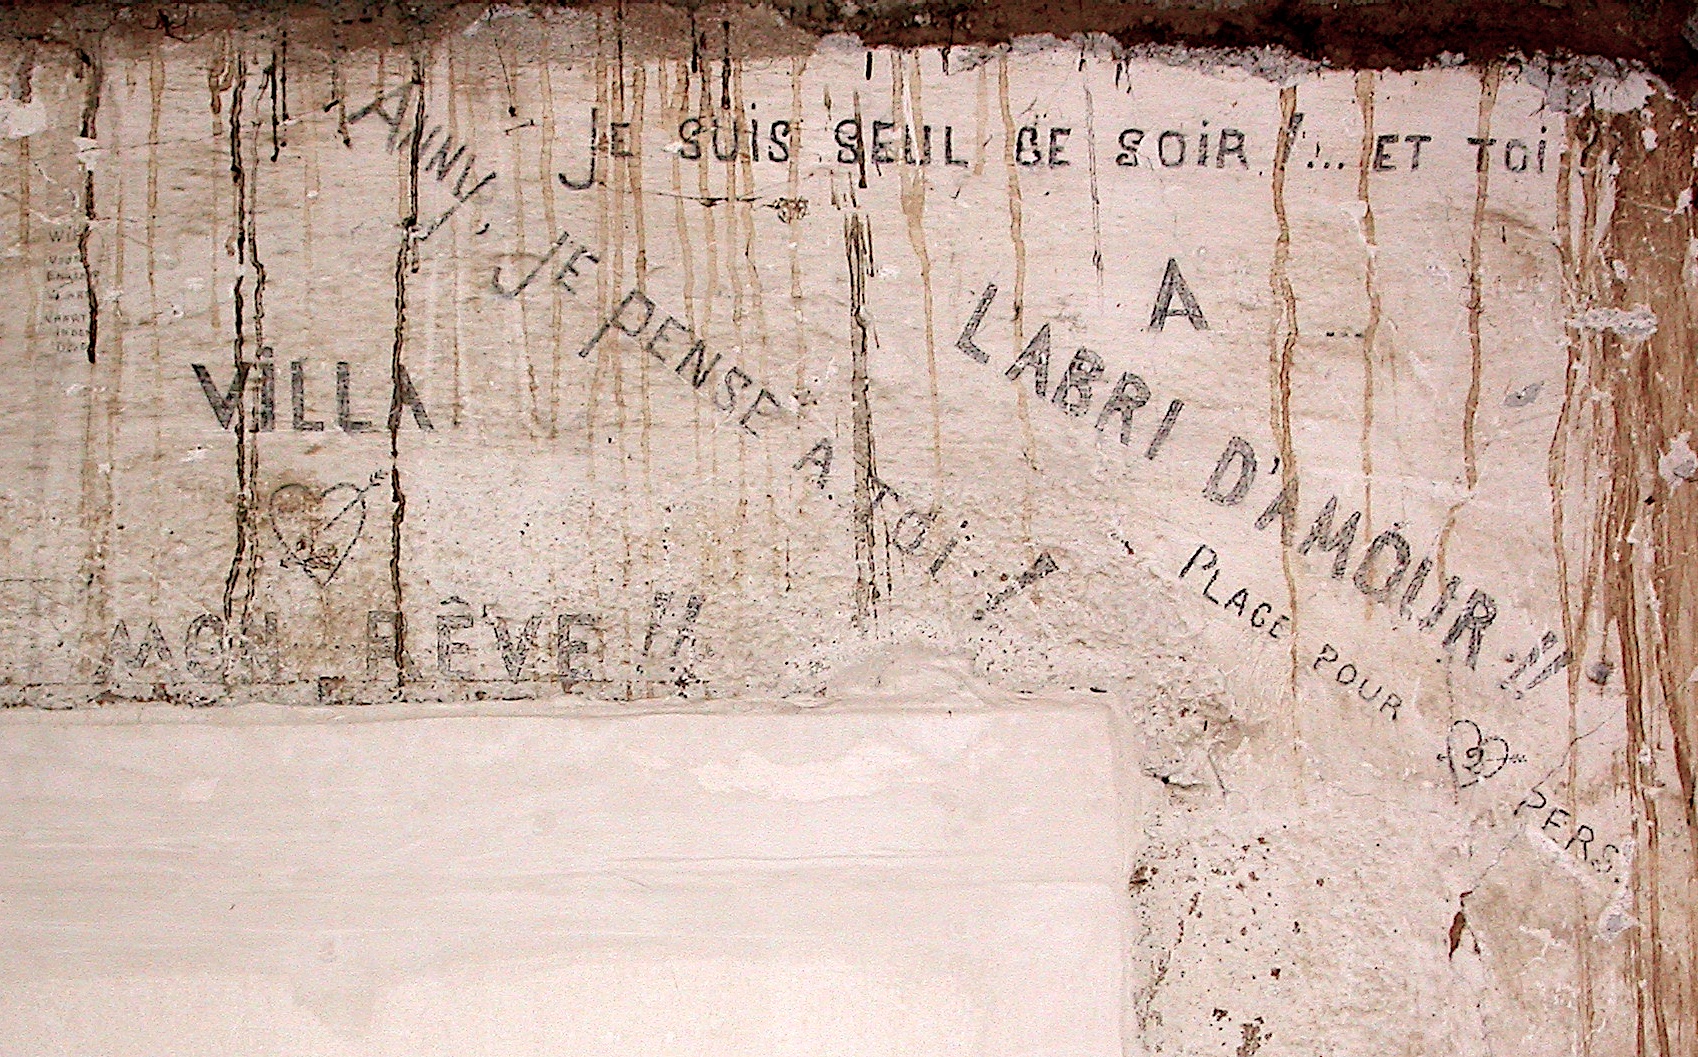 JE SUIS SEUL CE SOIR !... ET TOI ?
ANNY, JE PENSE A TOI !
A
LABRI D'AMOUR !!
PLACE POUR 2 PERS.
VILLA
MON RÊVE !!